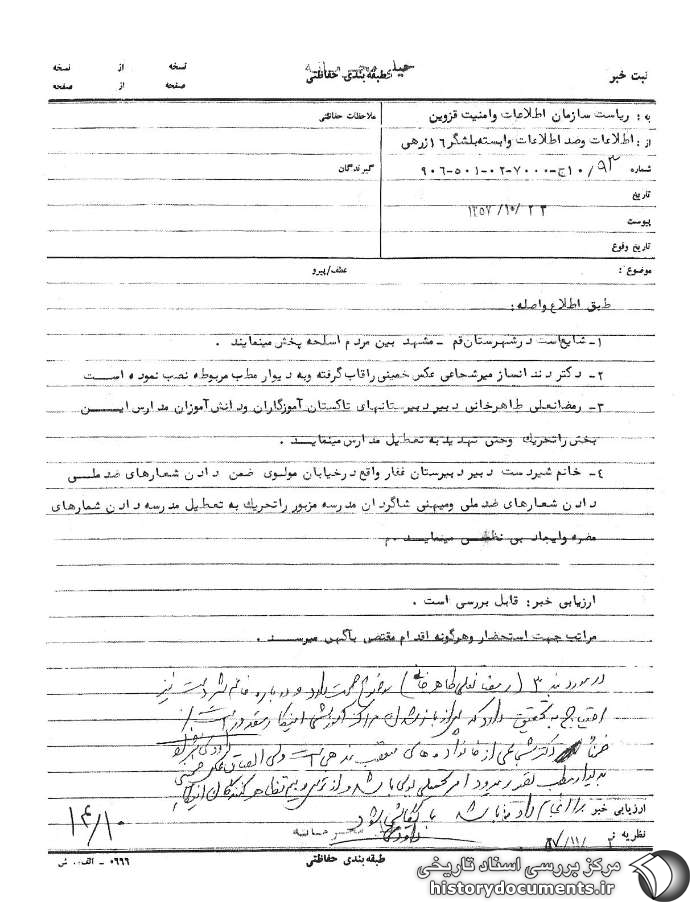 خیلی محرمانه
طبقه‌بندی حفاظتی
ثبت خبر
نسخه از نسخه
صفحه از صفحه
به: ریاست سازمان اطلاعات وامنیت قزوین
ملاحظات حفاظتی
از: اطلاعات وضد اطلاعات وابسته بلشگر ۱۶ زرهی
شماره ۱۰/۹۳ج-۷۰۰۰-۰۲-۵۰۱-۹۰۶
گیرندگان
تاریخ
۱۳۵۷/۱۰/۲۳
پیوست
تاریخ وقوع
موضوع:
عطف/پیرو
طبق اطلاع واصله:
۱- شایع است درشهرستان قم - مشهد بین مردم اسلحه پخش مینمایند.
۲- دکتر دندانساز میرشجاعی عکس خمینی راقاب گرفته وبه دیوار مطب مربوطه نصب نموده است
۳- رمضانعلی طاهرخانی دبیر دبیرستانهای تاکستان آموزگاران ودانش آموزان مدارس ایـن
بخش راتحریک وحتی تهدید به تعطیل مدارس مینماید.
۴- خانم شیردست دبیر دبیرستان غفار واقع درخیابان مولوی ضمن دادن شعارهای ضدملـی
دادن شعارهای ضدملی ومیهنی شاگردان مدرسه مزبور راتحریک به تعطیل مدرسه دادن شعارهای
مضره وایجاد بی نظمی مینماید. م
ارزیابی خبر: قابل بررسی است.
مراتب جهت استحضار وهرگونه اقدام مقتضی بآگهی میرسد.
در مورد بند ۳ (رمضانعلی طاهرخانی) موضوع صحت دارد و درباره خانم شیردست نیز
احتیاج به تحقیق دارد که پس از باز شدن مراکز آموزشی
ضمناً دکتر از خانواده‌های مذهبی است ولی الصاق عکس خمینی
بدیوار مطب
ارزیابی خبر
نظریه
۱۴/۱۰
طبقه‌بندی حفاظتی
۰۶۶۶ - الف..ش
مرکز بررسی اسناد تاریخی
historydocuments.ir